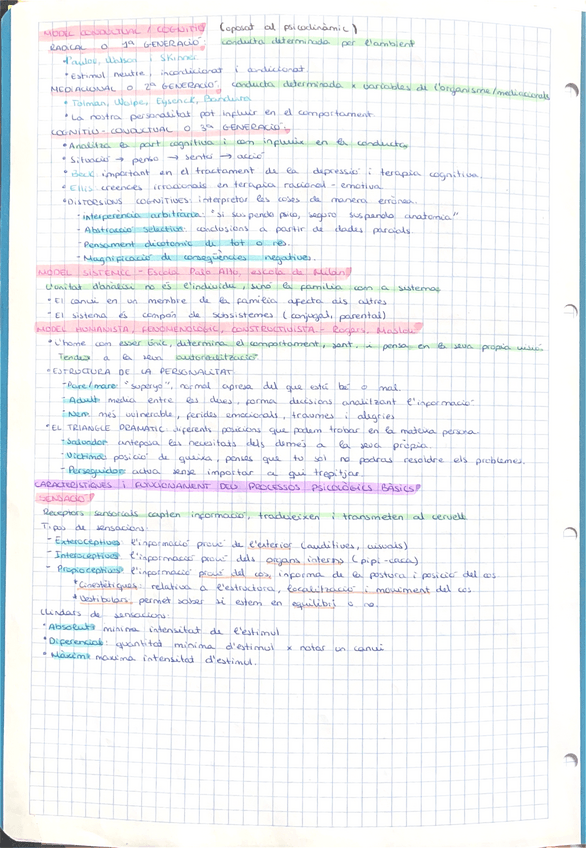 MODEL CONDUCTUAL / COGNITIU (oposat al psicodinàmic)
RADICAL O 1ª GENERACIÓ: conducta determinada per l'ambient
• Paulov, Watson i Skinner
• Estímul neutre, incondicionat i condicionat.
MEDIACIONAL O 2ª GENERACIÓ: conducta determinada x variables de l'organisme/mediacionals
• Tolman, Wolpe, Eysenck, Bandura
• La nostra personalitat pot influir en el comportament.
COGNITIU-CONDUCTUAL O 3ª GENERACIÓ:
• Analitza la part cognitiva i com influeix en la conducta
• Situació → penso → sento → acció
• Beck important en el tractament de la depressió i teràpia cognitiva.
• Ellis creences irracionals en teràpia racional-emotiva.
• DISTORSIONS COGNITIVES: interpretar les coses de manera errònea.
- Interferència arbitrària: "si suspendo psico, seguro suspendo anatomia"
- Abstracció selectiva: conclusions a partir de dades parcials.
- Pensament dicotòmic de tot o res.
- Magnificació de conseqüències negatives.
MODEL SISTÈMIC - Escola Palo Alto, escola de Milan
L'unitat d'anàlisi no és l'individu, sinó la família com a sistema
• El canvi en un membre de la família afecta als altres
• El sistema és compost de subsistemes (conjugal, parental)
MODEL HUMANISTA, FENOMENOLÒGIC, CONSTRUCTIVISTA - Rogers, Maslow
• L'home com ésser únic, determina el comportament, sent. i pensa en la seva pròpia visió.
Tendeix a la seva autorealització
• ESTRUCTURA DE LA PERSONALITAT
- Pare/mare: "superjo", normal apresa del que està bé o mal.
- Adult: media entre les dues, forma decisions analitzant l'informació
- Nen: més vulnerable, ferides emocionals, traumes i alegries
• EL TRIANGLE DRAMÀTIC: diferents posicions que podem trobar en la mateixa persona.
- Salvador anteposa les necessitats dels demés a la seva pròpia.
- Víctima posició de queixa, penses que tu sol no podras resoldre els problemes.
- Perseguidor actua sense importar a qui trepitjar.
CARACTERÍSTIQUES I FUNCIONAMENT DELS PROCESSOS PSICOLÒGICS BÀSICS
SENSACIÓ
Receptors sensorials capten informació, tradueixen i transmeten al cervell
Tipos de sensacions:
- Exteroceptives l'informació prové de l'exterior (auditives, visuals)
- Interoceptives l'informació prové dels òrgans interns (pipi-caca)
- Propioceptives l'informació prové del cos, informa de la postura i posició del cos
• Cinestètiques: relativa a l'estructura, localització i moviment del cos
• Vestibulars, permet saber si estem en equilibri o no.
Llindars de sensacions:
• Absolut: mínima intensitat de l'estímul
• Diferencial: quantitat mínima d'estímul x notar un canvi
• Màxim: màxima intensitat d'estímul.